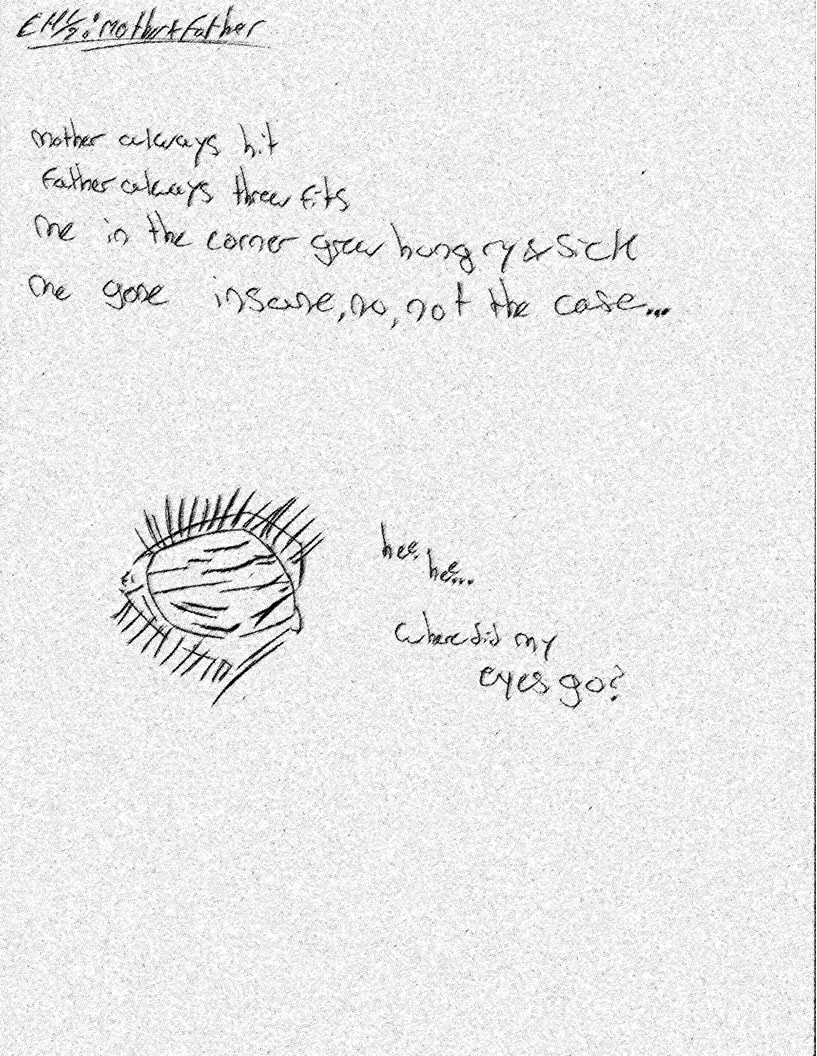 : Mother & Father
mother always hit
Father always threw fits
me in the corner grew hungry & sick
me gone insane, no, not the case...
hee he...
where did my
eyes go?